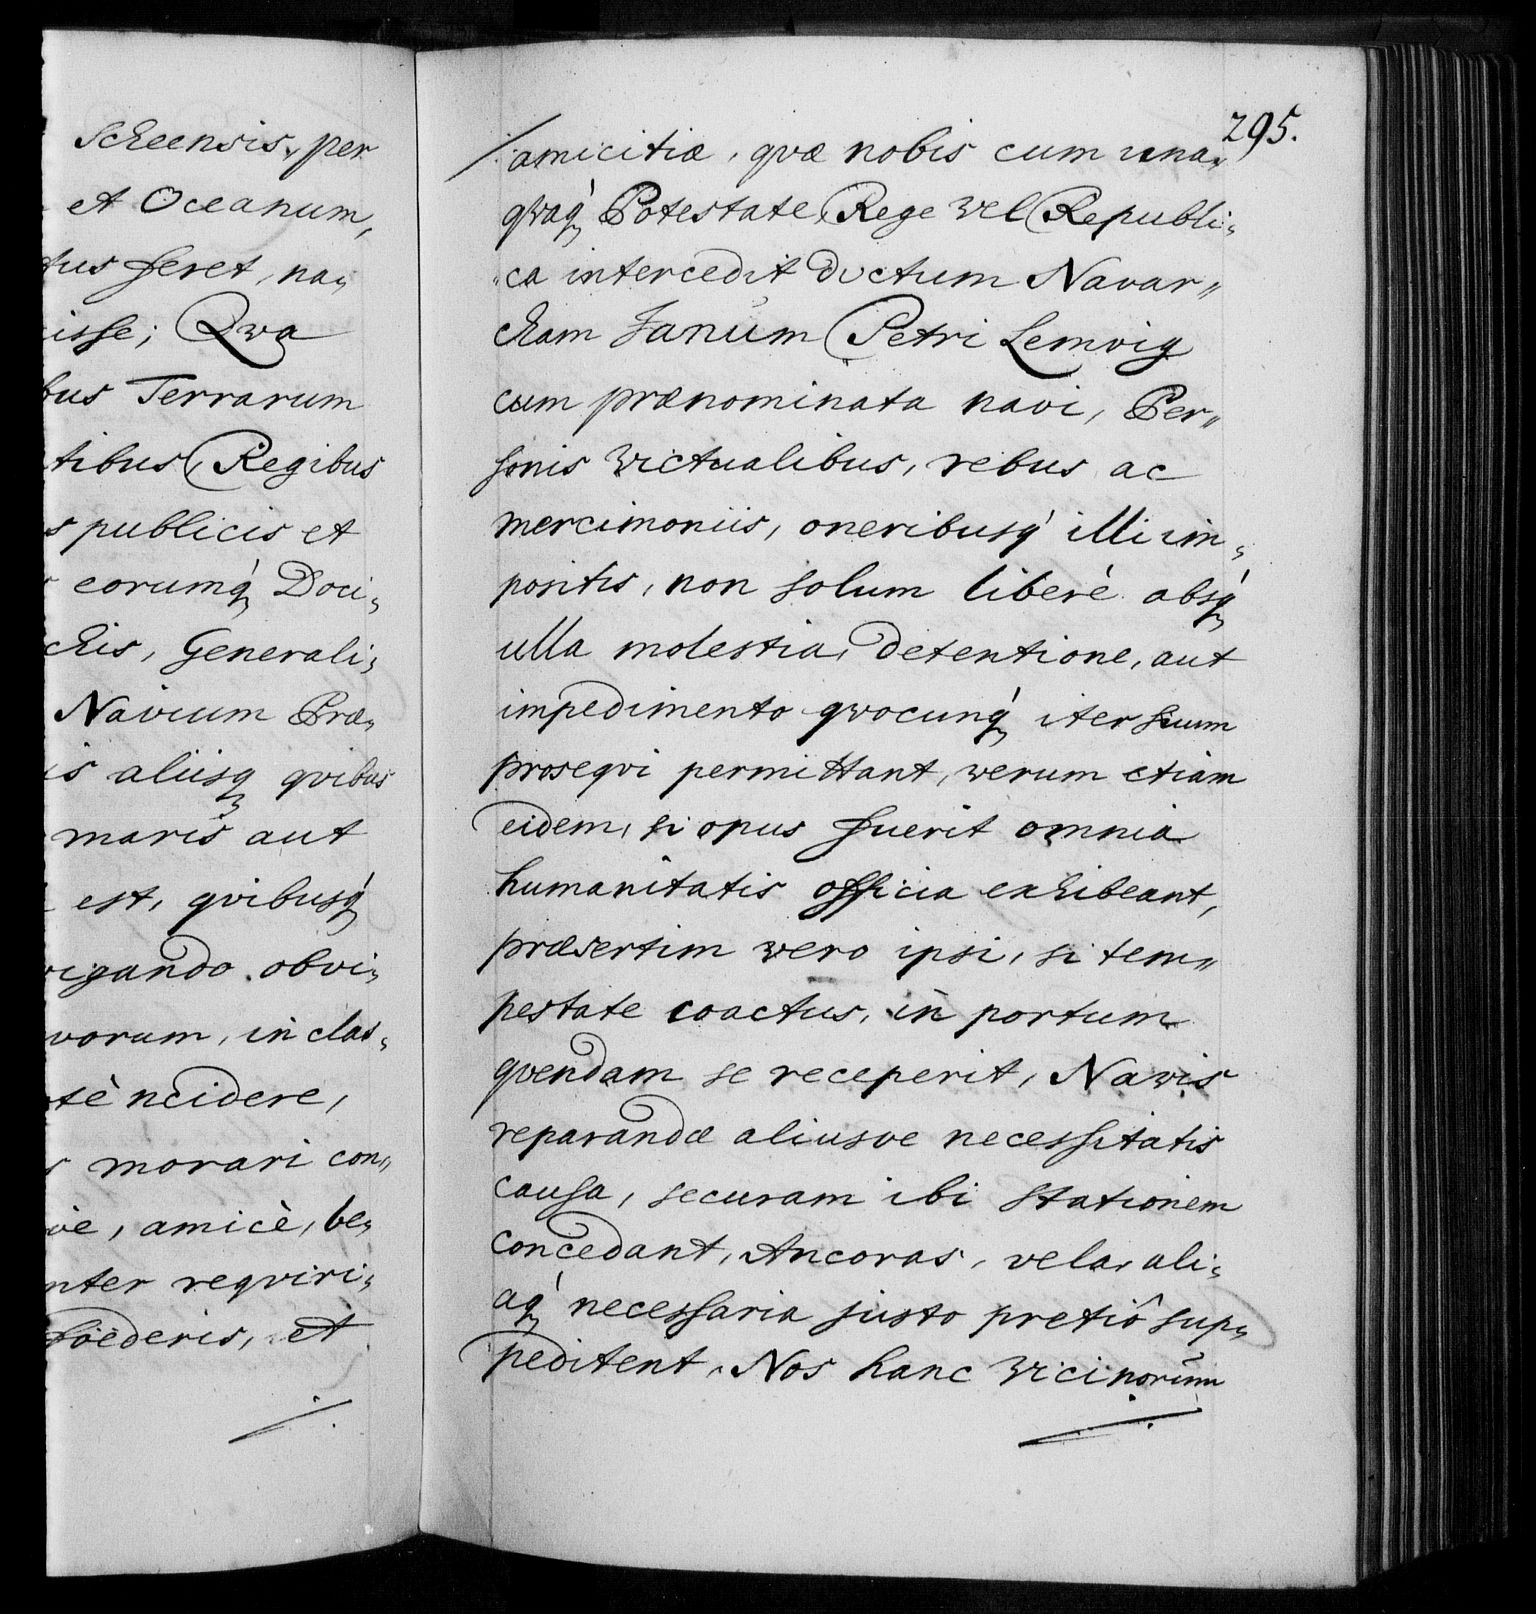 Scheensis, per
et Oceanum,
tus feret, na„
isse; Qva
bus Terrarum
tibus, Regibus
s publicis et
eorumq́ Doci„
chis, Generali„
Navium Præ„
is aliisq qvibus
maris aut
est, qvibusq́
vigando obvi„
vorum, in clas„
tè ncidere,
s morari con„
vè, amicè, be„
nter reqviri„
foederis, et
295.
amicitiæ, qvæ nobis cum una„
qvaq́ Potestate, Rege vel Republi„
„ca intercedit dictum Navar„
cham Janum Petri Lemvig
cum prænominata navi, Per„
sonis victualibus, rebus ac
mercimoniis, oneribusq́ illi im„
positis, non solum liberè absq́
ulla molestia, detentione, aut
impedimento qvocunq́ iter suum
proseqvi permittant, verum etiam
eidem, si opus fuerit omnia
humanitatis officia exhibeant,
præsertim vero ipsi, si tem„
pestate coactus, in portum
qvendam se receperit, Navis
reparandæ aliusve necessitatis
causa, securam ibi stationem
concedant, Ancoras, vela, ali„
aq́ necessaria justo pretiô sup„
peditent, Nos hanc vicinorum